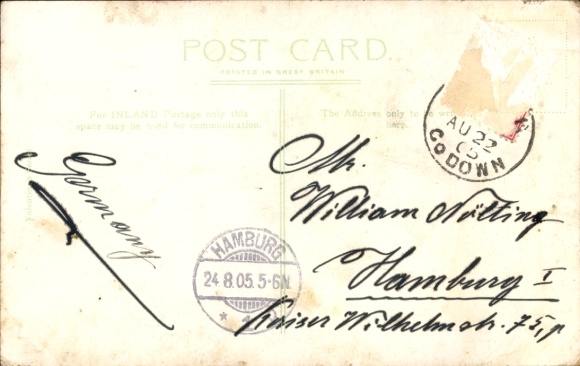 POST CARD.
PRINTED IN GREAT BRITAIN
For INLAND Postage only this
space may be used for communication.
The Address only to be
here.
AU 22
05
Co DOWN
Germany
Mr.
William Nölting
Hamburg I
Kaiser Wilhelmstr. 75, p
HAMBURG
24.8.05.5-6N.